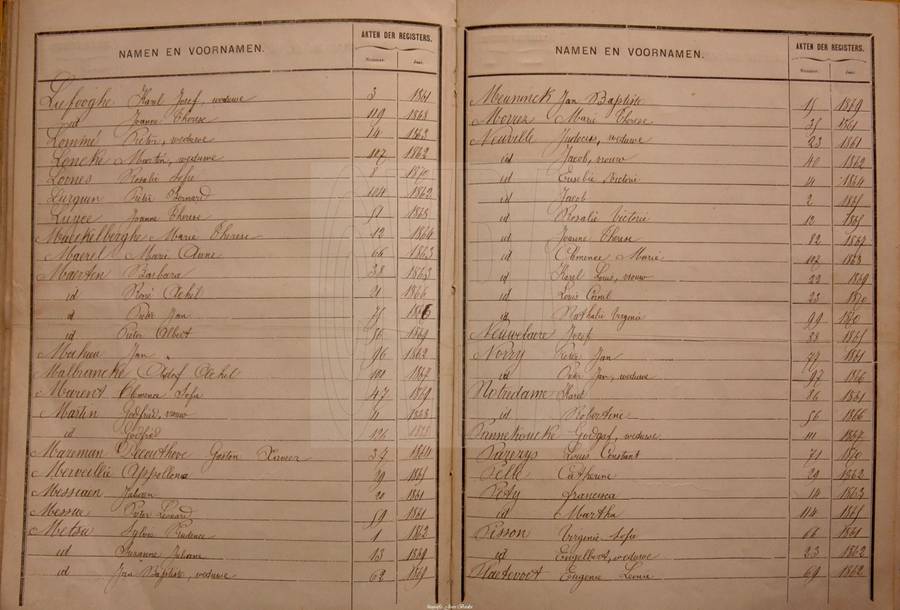 NAMEN EN VOORNAMEN. AKTEN DER REGISTERS.
Nummer. Jaar.
Liefooghe Karel Josef, weduwe 3 1861
id Joanna Therese 119 1868
Lommé Pieter, weduwe 74 1863
Loncke Martin, weduwe 107 1862
Loones Rosalie Sofie 8 1870
Lurquin Pieter Bernard 104 1862
Lunee Joanna Therese 51 1865
Maeckelberghe Marie Therese 12 1864
Maerel Marie Anne 66 1863
Maerten Barbara 38 1863
id René Achil 21 1866
id Pieter Jan 75
id Pieter Albert 56 1869
Mahieu Jan 96 1862
Malbrancke Achil 101 1867
Clemence Sofie 47 1869
Martin Godfried, vrouw 81 1868
id Godfried 126
Mareman Gaston Xavier 37 1864
Merveillie Appollona 29 1861
Messiaen Juliaan 20 1861
Messiae Pieter Leonard 59 1861
Metsu Sylvie Prudence 1 1862
id Suzanna Juliana 13 1861
id Jan Baptiste, weduwe 62 1869
NAMEN EN VOORNAMEN. AKTEN DER REGISTERS.
Nummer. Jaar.
Meuninck Jan Baptiste 15 1869
Marie Therese 35 1861
Neuville Judocus, weduwe 23 1861
id Jacob, vrouw 40 1862
id Eusebie Victorie 14 1864
id Jacob 2 1865
id Rosalie Victorie 12 1865
id Joanna Therese 82 1867
id Clemence Marie 107 1868
id Karel Louis, vrouw 22 1869
id Louis Cornil 23 1870
id Nathalie Virginie 99 1870
Neuwelaere Jozef 38 1865
Norry Pieter Jan 77 1861
id Pieter Jan, weduwe 97 1866
Notredame Karel 86 1861
id Robertine 56 1866
Pannekoucke weduwe 111 1867
Louis Constant 71 1870
Pelle Catherine 29 1862
Francisca 14 1863
id Martha 114 1865
Pisson Virginie Sofie 66 1861
id Engelbert, weduwe 23 1862
Plaetevoet Eugenie Leonie 69 1862